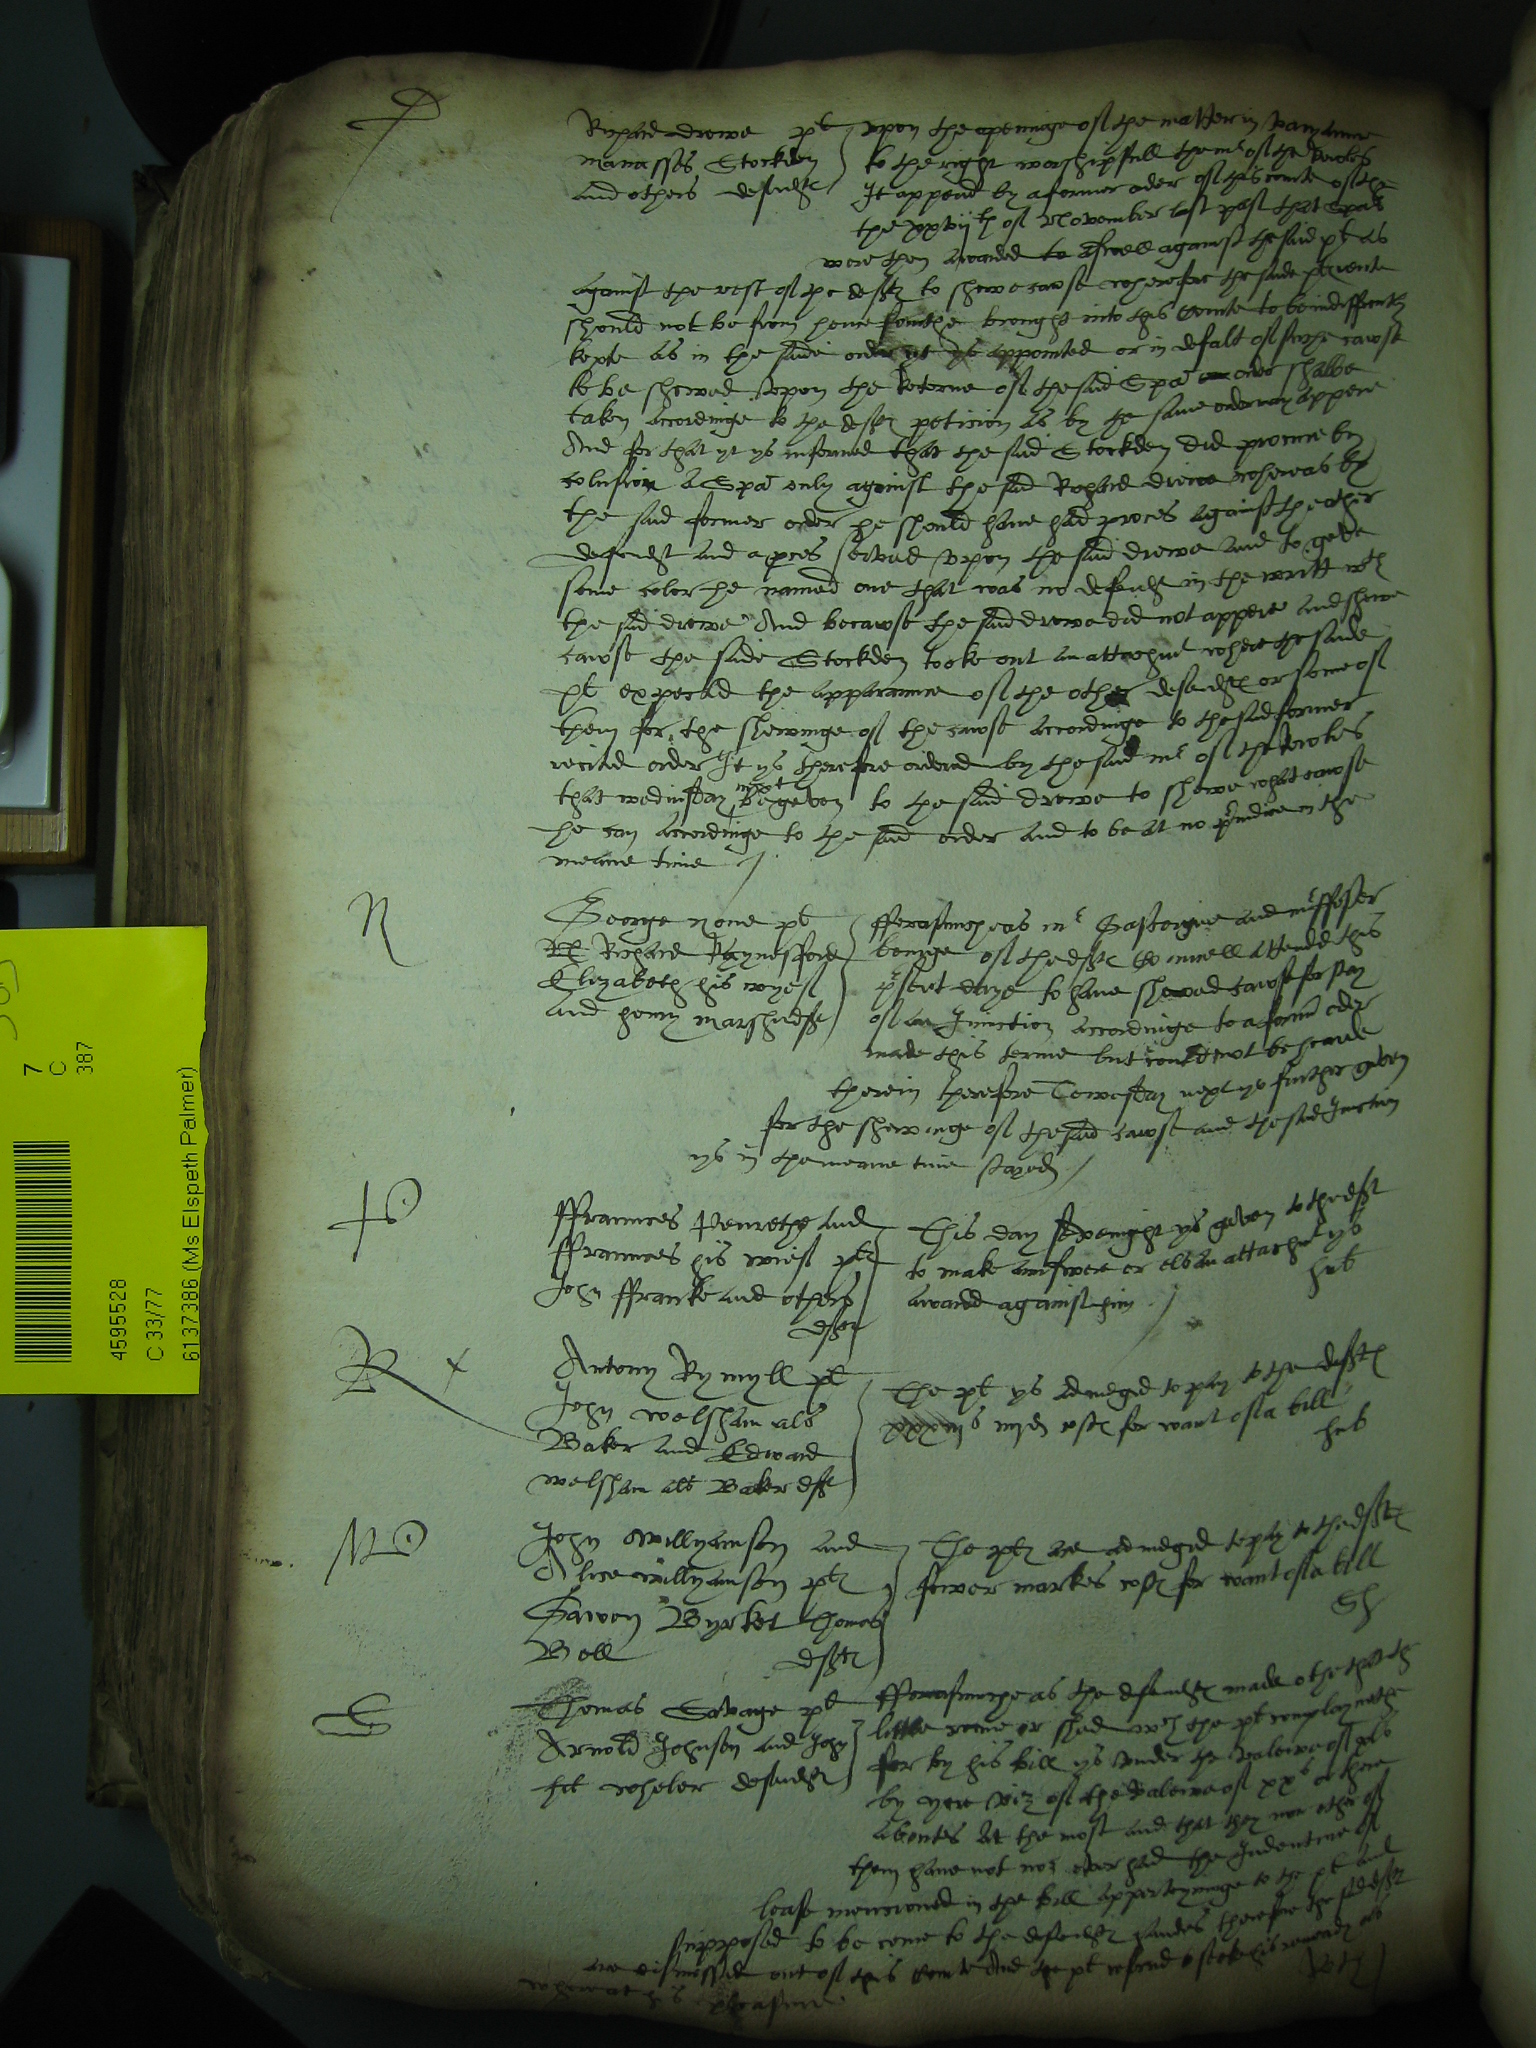 Richard drewe plt
manasses Stockden
and others defendtes
Vpon the openinge of the matter in variaunce
to the right worshipfull the mr of the Rowles
It appered by a former order of this courte of the
the xxviijth of November last past that Spa
were then awarded to aswell against the said plt as
against the rest of the deftes to shewe cause wherefore the said
should not be from henceforthe brought into this Courte to be indifferently
kepte as in the saide order yt ys appointed or in defalt of suche cause
to be shewed vpon the retorne of the said Spa order shalbe
taken accordinge to the deftes peticion as by the same order may appere
And for that yt ys informed that the said Stockden did procure by
colusion a Spa only against the said Richard drewe whereas by
the said former order he should have had proces against the other
defendtes and a proces served vpon the said drewe and to geve
some color he named one that was no defendt in the writt wth
the said drewe And because the said drewe did not appere and shewe
cause the saide Stockden tooke out an attachmt where the saide
plt expected the apparaunce of the other defendtes or some of
them for the shewinge of the cause accordinge to the said former
recited order It ys therefore ordered by the said mr of the Rowles
that wedinsday next be geven to the said drewe to shewe what cause
he can accordinge to the said order and to be at no preiudice in the
meane time /
N
George None plt
Richard Raynesfford
Elizabeth his wyef
and henry marshe deftes
fforasmuche as mr Gascoigne and mr
beinge of the deftes Councell attended this
present daye to have shewed cause for stay
of an Iniunction accordinge to a former order
made this terme but could not be heard
therein therefore Tewesday next ys further geven
for the shewinge of the said cause and the said Iniunction
ys in the meane time stayed /
P
ffraunces Penrethe and
ffraunces his wief pltes
John ffranke and others
deftes
This day sevenight ys geven to the deft
to make answere or els an attachmt ys
awarded against him /
R x
Antony Rymyll plt
John welsham als
Baker and Edward
welsham als Baker deftes
The plt ys adiudged to pay to the deftes
xxxiijs iiijd costes for want of a bill
W
John Willyamson and
Alice willyamson pltes
Gawen Byrket Thomas
Bell deftes
The pltes are adiudged to pay to the deftes
fower markes costes for want of a bill
S
Thomas Savage plt
Arnold Johnson and John
wheler defendtes
fforasmuche as the defendtes made othe that the
little rome or shed wch the plt complayneth
for by his bill ys vnder the valewe of xls
by yere viz of the valewe of xxs or there
aboutes at the most and that they nor ether of
them have not nor ever had the Indenture of
lease mencioned in the bill apperteyninge to the plt and
supposed to be come to the defendtes handes therefore the said deftes
are dismissed out of this Courte And the plt
pleasure
4595528
C 33/77
6137386 (Ms Elspeth Palmer)
7
C
387